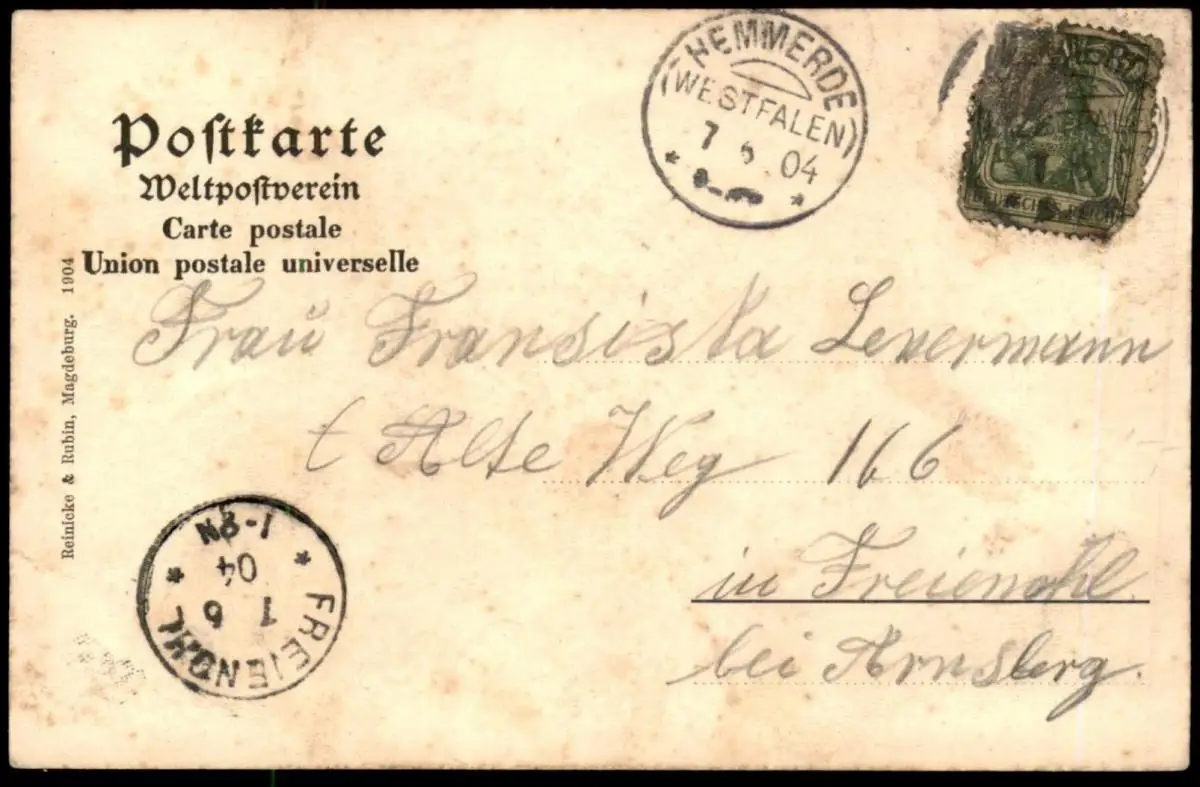 Poſtkarte
Weltpoſtverein
Carte postale
Union postale universelle
Reinicke & Rubin, Magdeburg. 1904
HEMMERDE
(WESTFALEN)
6 . 04
DEUTSCHES REICH
Frau Fransiska Levermann
Alte Weg 166
in Freienohl.
bei Arnsberg.
FREIENOHL
1 6
04
1-2N